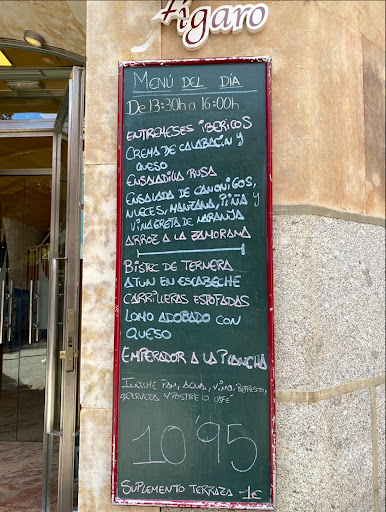 Fígaro
MENÚ DEL DÍA
DE 13:30h a 16:00h
ENTREMESES IBERICOS
CREMA DE CALABACIN Y
QUESO
ENSALADILLA RUSA
ENSALADA DE CANONIGOS,
NUECES, MANZANA, PIÑA Y
VINAGRETA DE NARANJA
ARROZ A LA ZAMORANA
BISTEC DE TERNERA
ATUN EN ESCABECHE
CARRILLERAS ESTOFADAS
LOMO ADOBADO CON
QUESO
EMPERADOR A LA PLANCHA
INCLUYE PAN, AGUA, VINO, REFRESCO,
CERVEZA Y POSTRE O CAFÉ
10'95
SUPLEMENTO TERRAZA -1€